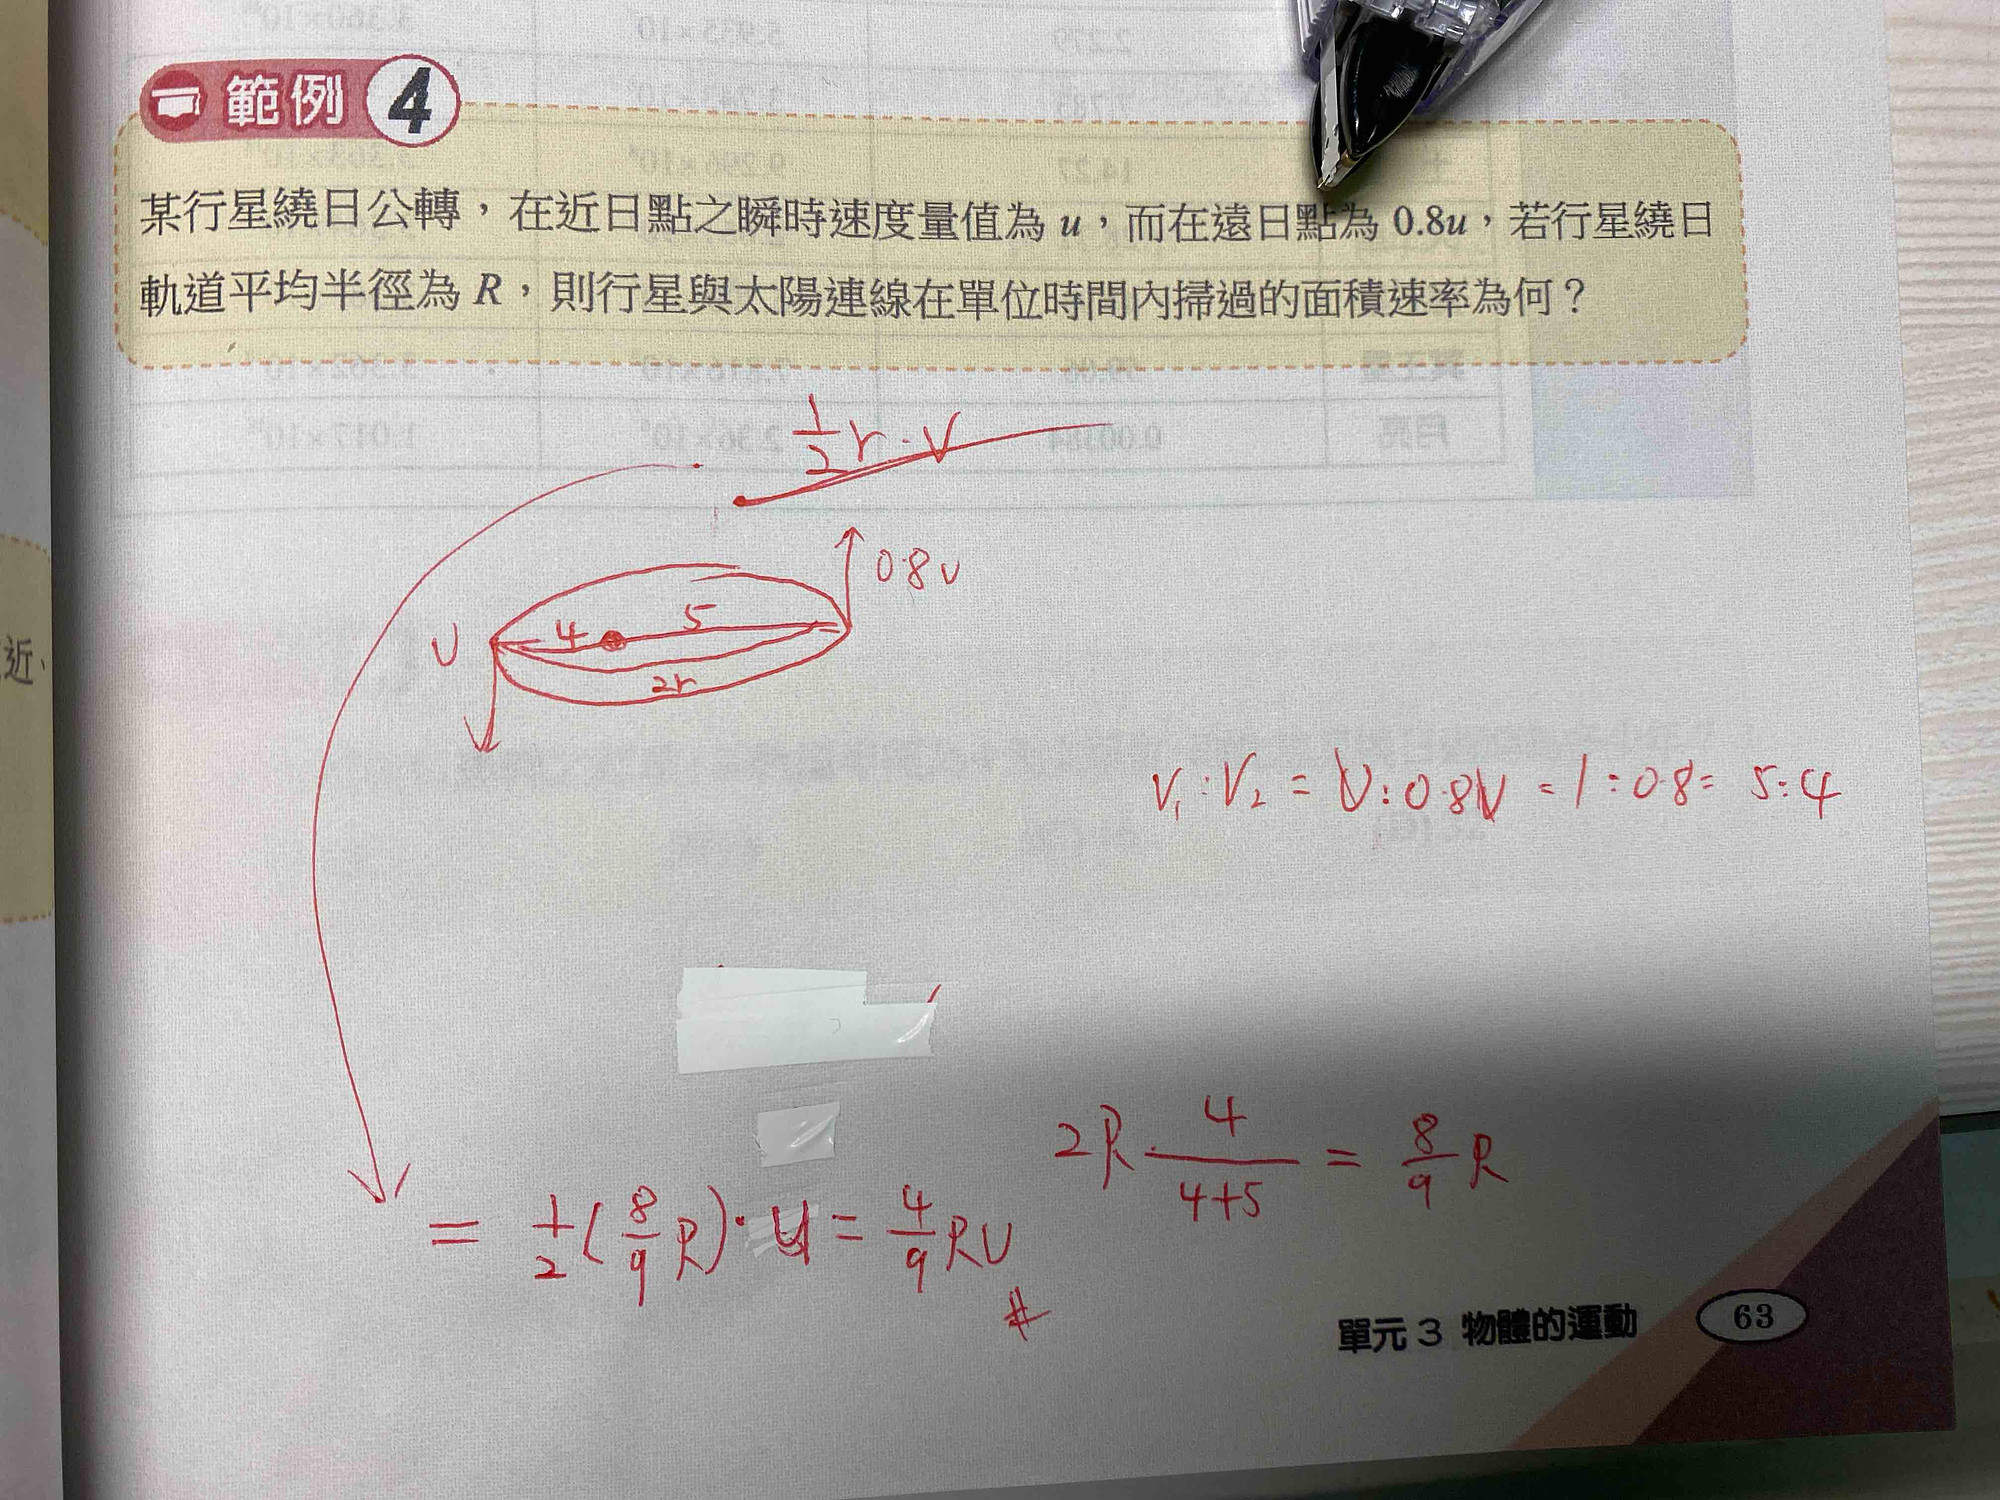 範例 4
某行星繞日公轉，在近日點之瞬時速度量值為 u，而在遠日點為 0.8u，若行星繞日
軌道平均半徑為 R，則行星與太陽連線在單位時間內掃過的面積速率為何？
1/2 r·V
0.8v
U 4 5
2r
近、
V₁:V₂ = V:0.8V = 1:0.8 = 5:4
2R·4/(4+5) = 8/9 R
= 1/2(8/9 R)·u = 4/9 RU
#
單元 3 物體的運動 63